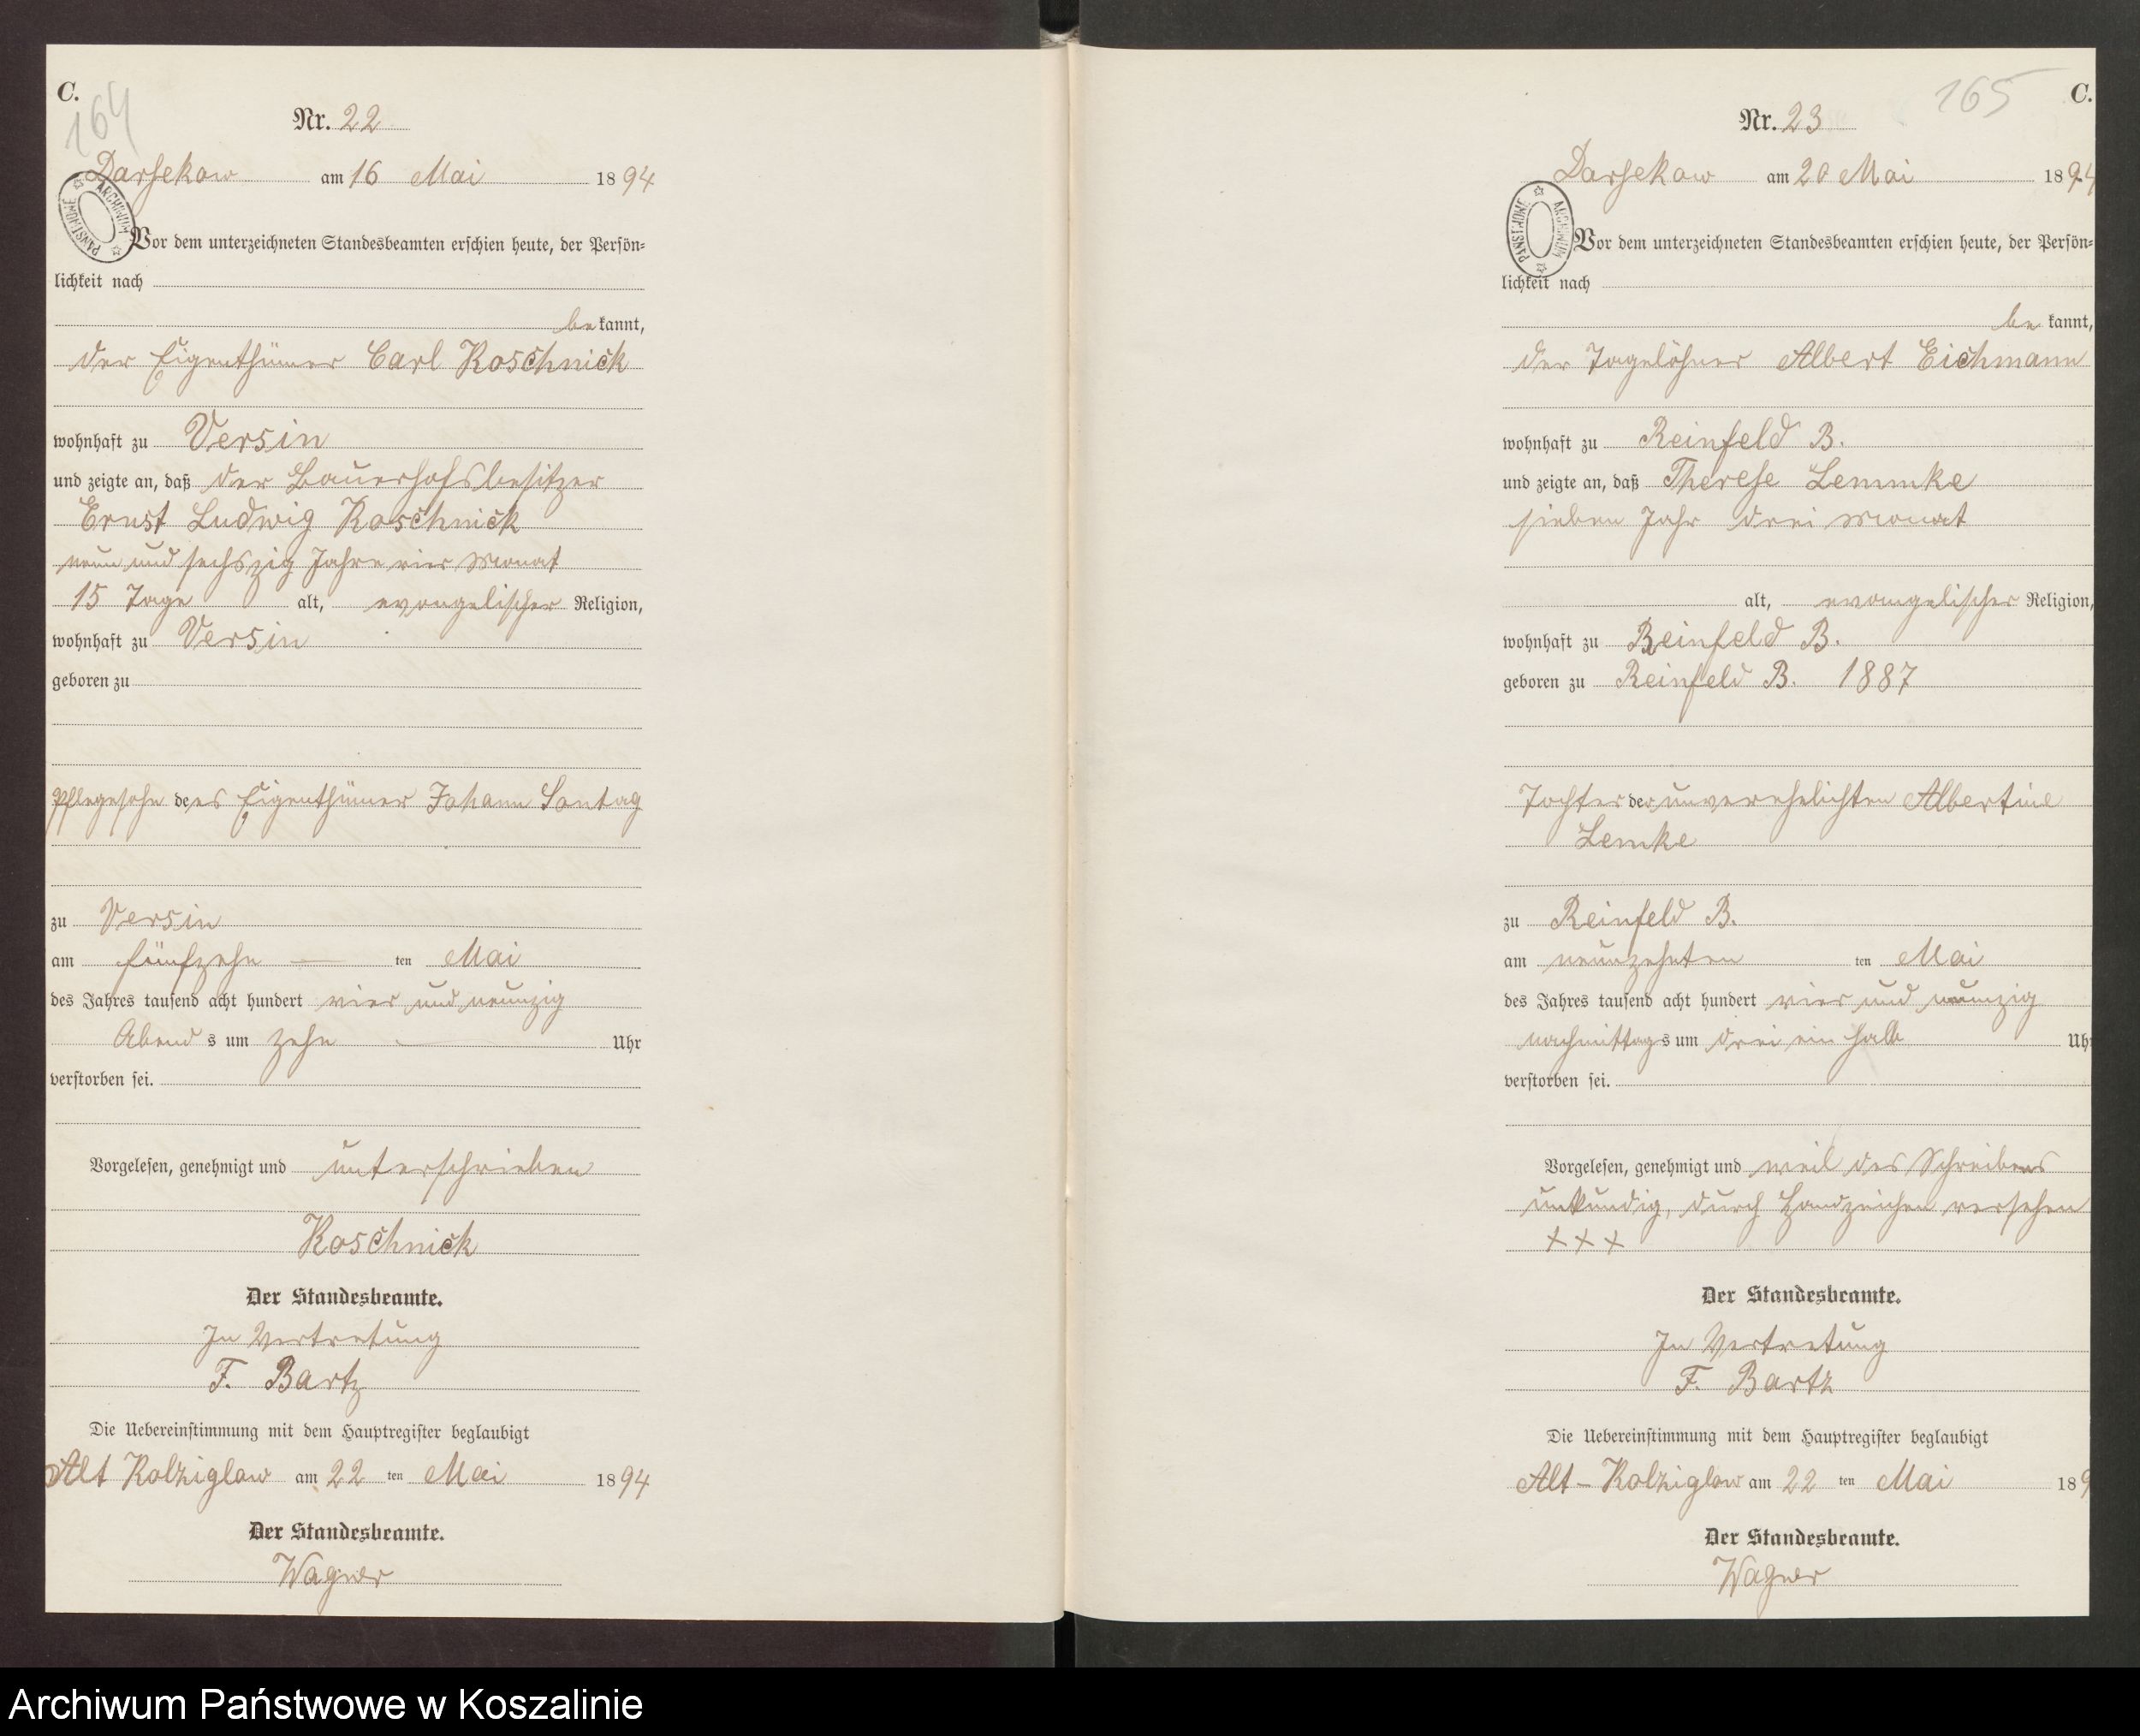 C.
164
Nr. 22
Darsekow am 16 Mai 1894
ARCHIWUM PAŃSTWOWE
Vor dem unterzeichneten Standesbeamten erschien heute, der Persön-
lichkeit nach
be kannt,
der Eigenthümer Carl Koschnick
wohnhaft zu Versin
und zeigte an, daß der Bauerhofsbesitzer
Ernst Ludwig Koschnick
neun und sechszig Jahre vier Monat
15 Tage alt, evangelischer Religion,
wohnhaft zu Versin
geboren zu
Pflegesohn des Eigenthümer Johann Sontag
zu Versin
am fünfzehn — ten Mai
des Jahres tausend acht hundert vier und neunzig
Abend s um zehn — Uhr
verstorben sei.
Vorgelesen, genehmigt und unterschrieben
Koschnick
Der Standesbeamte.
In Vertretung
F. Bartz
Die Uebereinstimmung mit dem Hauptregister beglaubigt
Alt Kolziglow am 22 ten Mai 1894
Der Standesbeamte.
Wagner
165
C.
Nr. 23
Darsekow am 20 Mai 1894
ARCHIWUM PAŃSTWOWE
Vor dem unterzeichneten Standesbeamten erschien heute, der Persön-
lichkeit nach
be kannt,
der Tagelöhner Albert Eichmann
wohnhaft zu Reinfeld B.
und zeigte an, daß Therese Lemmke
sieben Jahr drei Monat
alt, evangelischer Religion,
wohnhaft zu Reinfeld B.
geboren zu Reinfeld B. 1887
Tochter der unverehelichten Albertine
Lemke
zu Reinfeld B.
am neunzehnten ten Mai
des Jahres tausend acht hundert vier und neunzig
nachmittag s um drei ein halb Uhr
verstorben sei.
Vorgelesen, genehmigt und weil des Schreibens
unkundig, durch Handzeichen versehen
+ + +
Der Standesbeamte.
In Vertretung
F. Bartz
Die Uebereinstimmung mit dem Hauptregister beglaubigt
Alt-Kolziglow am 22 ten Mai 189
Der Standesbeamte.
Wagner
Archiwum Państwowe w Koszalinie